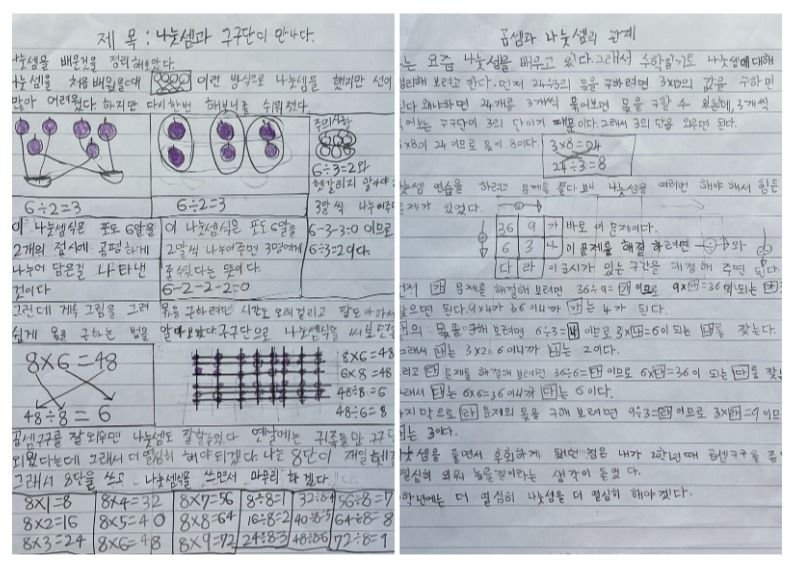 제목: 나눗셈과 구구단이 만나다.
나눗셈을 배운것을 정리해보았다
나눗셈을 처음배웠을때 이런 방식으로 나눗셈을 했지만 선이
많아 어려웠다. 하지만 다시한번 해보니까 쉬워졌다.
6÷2=3
6÷2=3
주의사항
6÷3=2와
헷갈리지 않
3알씩 나누어
이 나눗셈식은 포도 6알을
2개의 접시에 공평하게
나누어 담은걸 나타낸
것이다
이 나눗셈식은 포도 6알을
2알씩 나누어주면 3명에게
줄수있다는 뜻이다.
6-2-2-2=0
6-3-3=0 이므로
6÷3=2이다.
그런데 계속 그림을 그려 몫을 구하려면 시간도 오래걸리고 팔도 아파서
쉽게 몫을 구하는 법을 알아보았다 구구단으로 나눗셈식을 써보
8×6=48
48÷8=6
8×6=48
6×8=48
48÷8=6
48÷6=8
곱셈구구를 잘 외우면 나눗셈도 잘할수있다 옛날에는 귀족들만 구구
외웠다는데 그래서 더 열심히 해야되겠다. 나는 8단이 제일
그래서 8단을 쓰고 나눗셈식을 쓰면서 마무리 하겠다
8×1=8 8×4=32 8×7=56 8÷8=1 32÷8=4 56÷8=7
8×2=16 8×5=40 8×8=64 16÷8=2 40÷8=5 64÷8=8
8×3=24 8×6=48 8×9=72 24÷8=3 48÷8=6 72÷8=9
곱셈과 나눗셈의 관계
는 요즘 나눗셈을 배우고 있다. 그래서 수학일기도 나눗셈에 대해
정리해 보려고 한다. 먼저 24÷3의 몫을 구하려면 3×□의 값을 구하면
된다 왜냐하면 24개를 3개씩 묶어보면 몫을 구할 수 있는데, 3개씩
묶어보는 구구단이 3의 단이기 때문이다. 그래서 3의 단을 외우면 된다.
3×8이 24 이므로 몫이 8이다.
3×8=24
24÷3=8
나눗셈 연습을 하려고 문제를 풀다 보면 나눗셈을 여러번 해야 해서 힘든
문제가 있었다.
36 9 가 바로 이 문제이다.
6 3 나 이 문제를 해결 하려면 ÷ 와
다 라 이 표시가 있는 구간을 해결해 주면 된다.
먼저 가 문제를 해결해 보려면 36÷9=가 이므로 9×가=36이 되는
찾으면 된다. 9×4가 36이니까 가는 4가 된다.
나의 몫을 구해 보려면 6÷3=나 이므로 3×나=6이 되는 나를 찾는다.
그래서 나는 3×2=6이니까 나는 2이다.
그리고 다 문제를 해결해 보려면 36÷6=다 이므로 6×다=36이 되는 다를 찾
그래서 다는 6×6=36이니까 다는 6이다.
마지막으로 라 문제의 몫을 구해 보려면 9÷3=라 이므로 3×라=9이므
라는 3이다.
나눗셈을 풀면서 후회하게 됐던 점은 내가 2학년때 곱셈구구를 좀
열심히 외워 놓을걸이라는 생각이 들었다.
학년에는 더 열심히 나눗셈을 더 열심히 해야겠다.